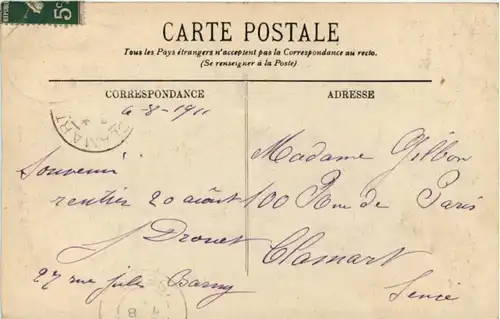 5c
CARTE POSTALE
Tous les Pays étrangers n'acceptent pas la Correspondance au recto.
(Se renseigner à la Poste)
CORRESPONDANCE
ADRESSE
6-8-1911
CLAMART
Souvenir
rentrée 20 août
J Drouet
27 rue Jules Barny
Madame Gilbon
100 Rue de Paris
Clamart
Seine